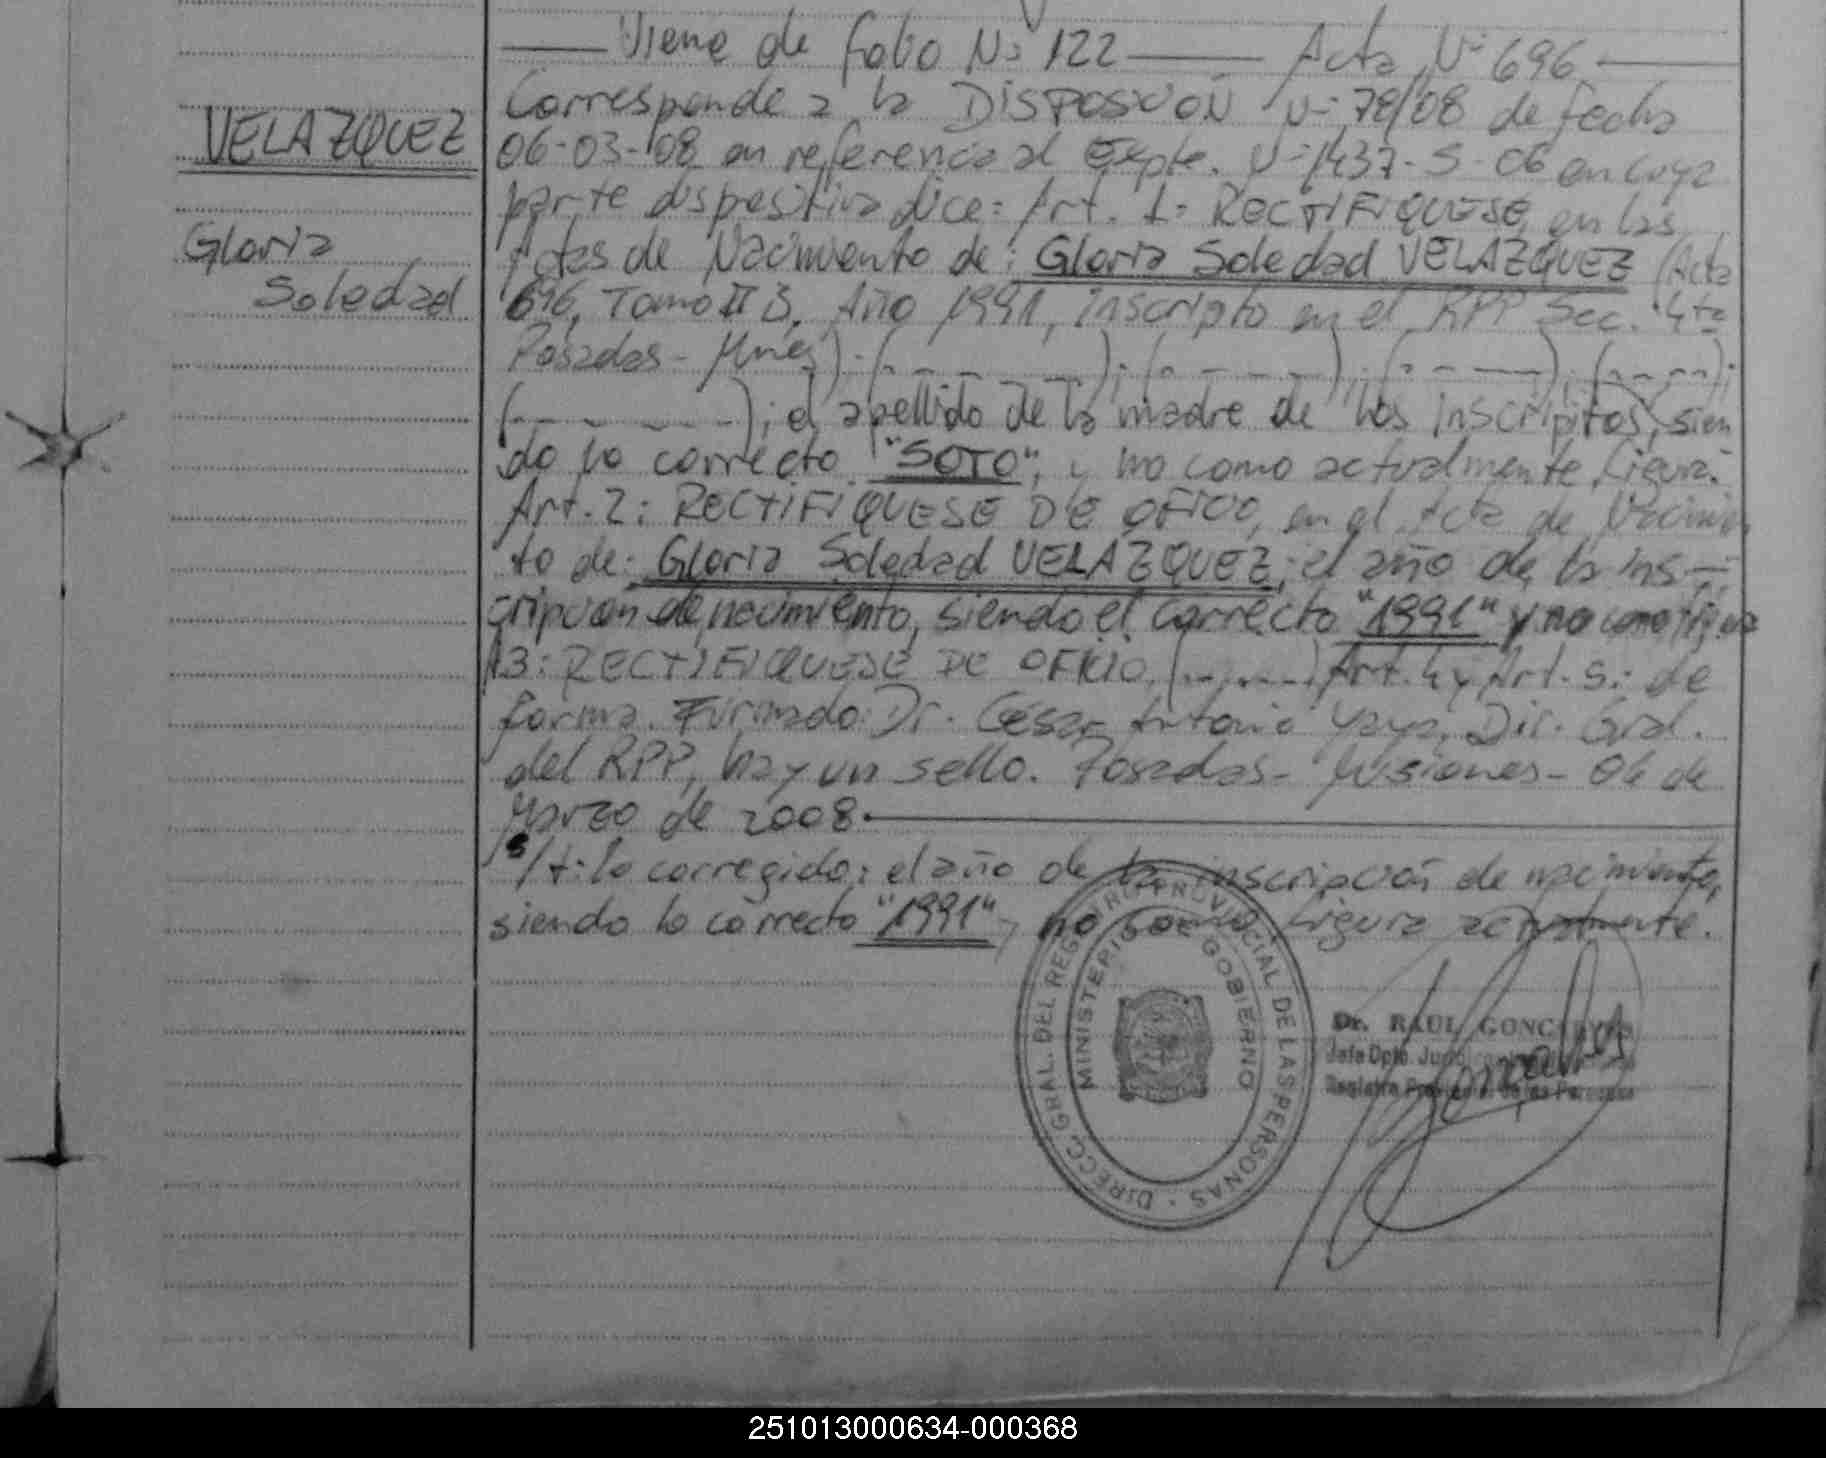 Viene de folio Nº 122 Acta Nº 696
VELAZQUEZ
Gloria
Soledad
Corresponde a la DISPOSICION Nº 78/08 de fecha
06-03-08 en referencia al Expte. Nº 1437-S-06 en cuya
parte dispositiva dice: Art. 1º RECTIFIQUESE, en las
Actas de Nacimiento de: Gloria Soledad VELAZQUEZ (Acta
696, Tomo II B, Año 1991, inscripto en el RPP Sec. 4ta
Posadas - Mnes); (- - - - -); (- - - - -); (- - - - -); (- - - - -);
(- - - - - -); el apellido de la madre de los inscriptos, sien
do lo correcto "SOTO", y no como actualmente figura.
Art. 2: RECTIFIQUESE DE OFICIO, en el Acta de Nacimien
to de: Gloria Soledad VELAZQUEZ; el año de la ins-
cripcion de nacimiento, siendo el correcto "1991" y no como figura
A3: RECTIFIQUESE DE OFICIO, (- - - - -) Art. 4 y Art. 5: de
forma. Firmado: Dr. César Antonio Yaya, Dir. Gral.
del RPP, hay un sello. Posadas - Misiones - 06 de
Marzo de 2008.
s/tilo corregido: el año de la inscripción de nacimiento,
siendo lo correcto "1991" y no como figura actualmente.
DIRECC. GRAL. DEL REGISTRO PROVINCIAL DE LAS PERSONAS
MINISTERIO DE GOBIERNO
Dr. RAUL GONCALVES
Jefe Dpto. Jurídico
Registro Provincial de las Personas
251013000634-000368